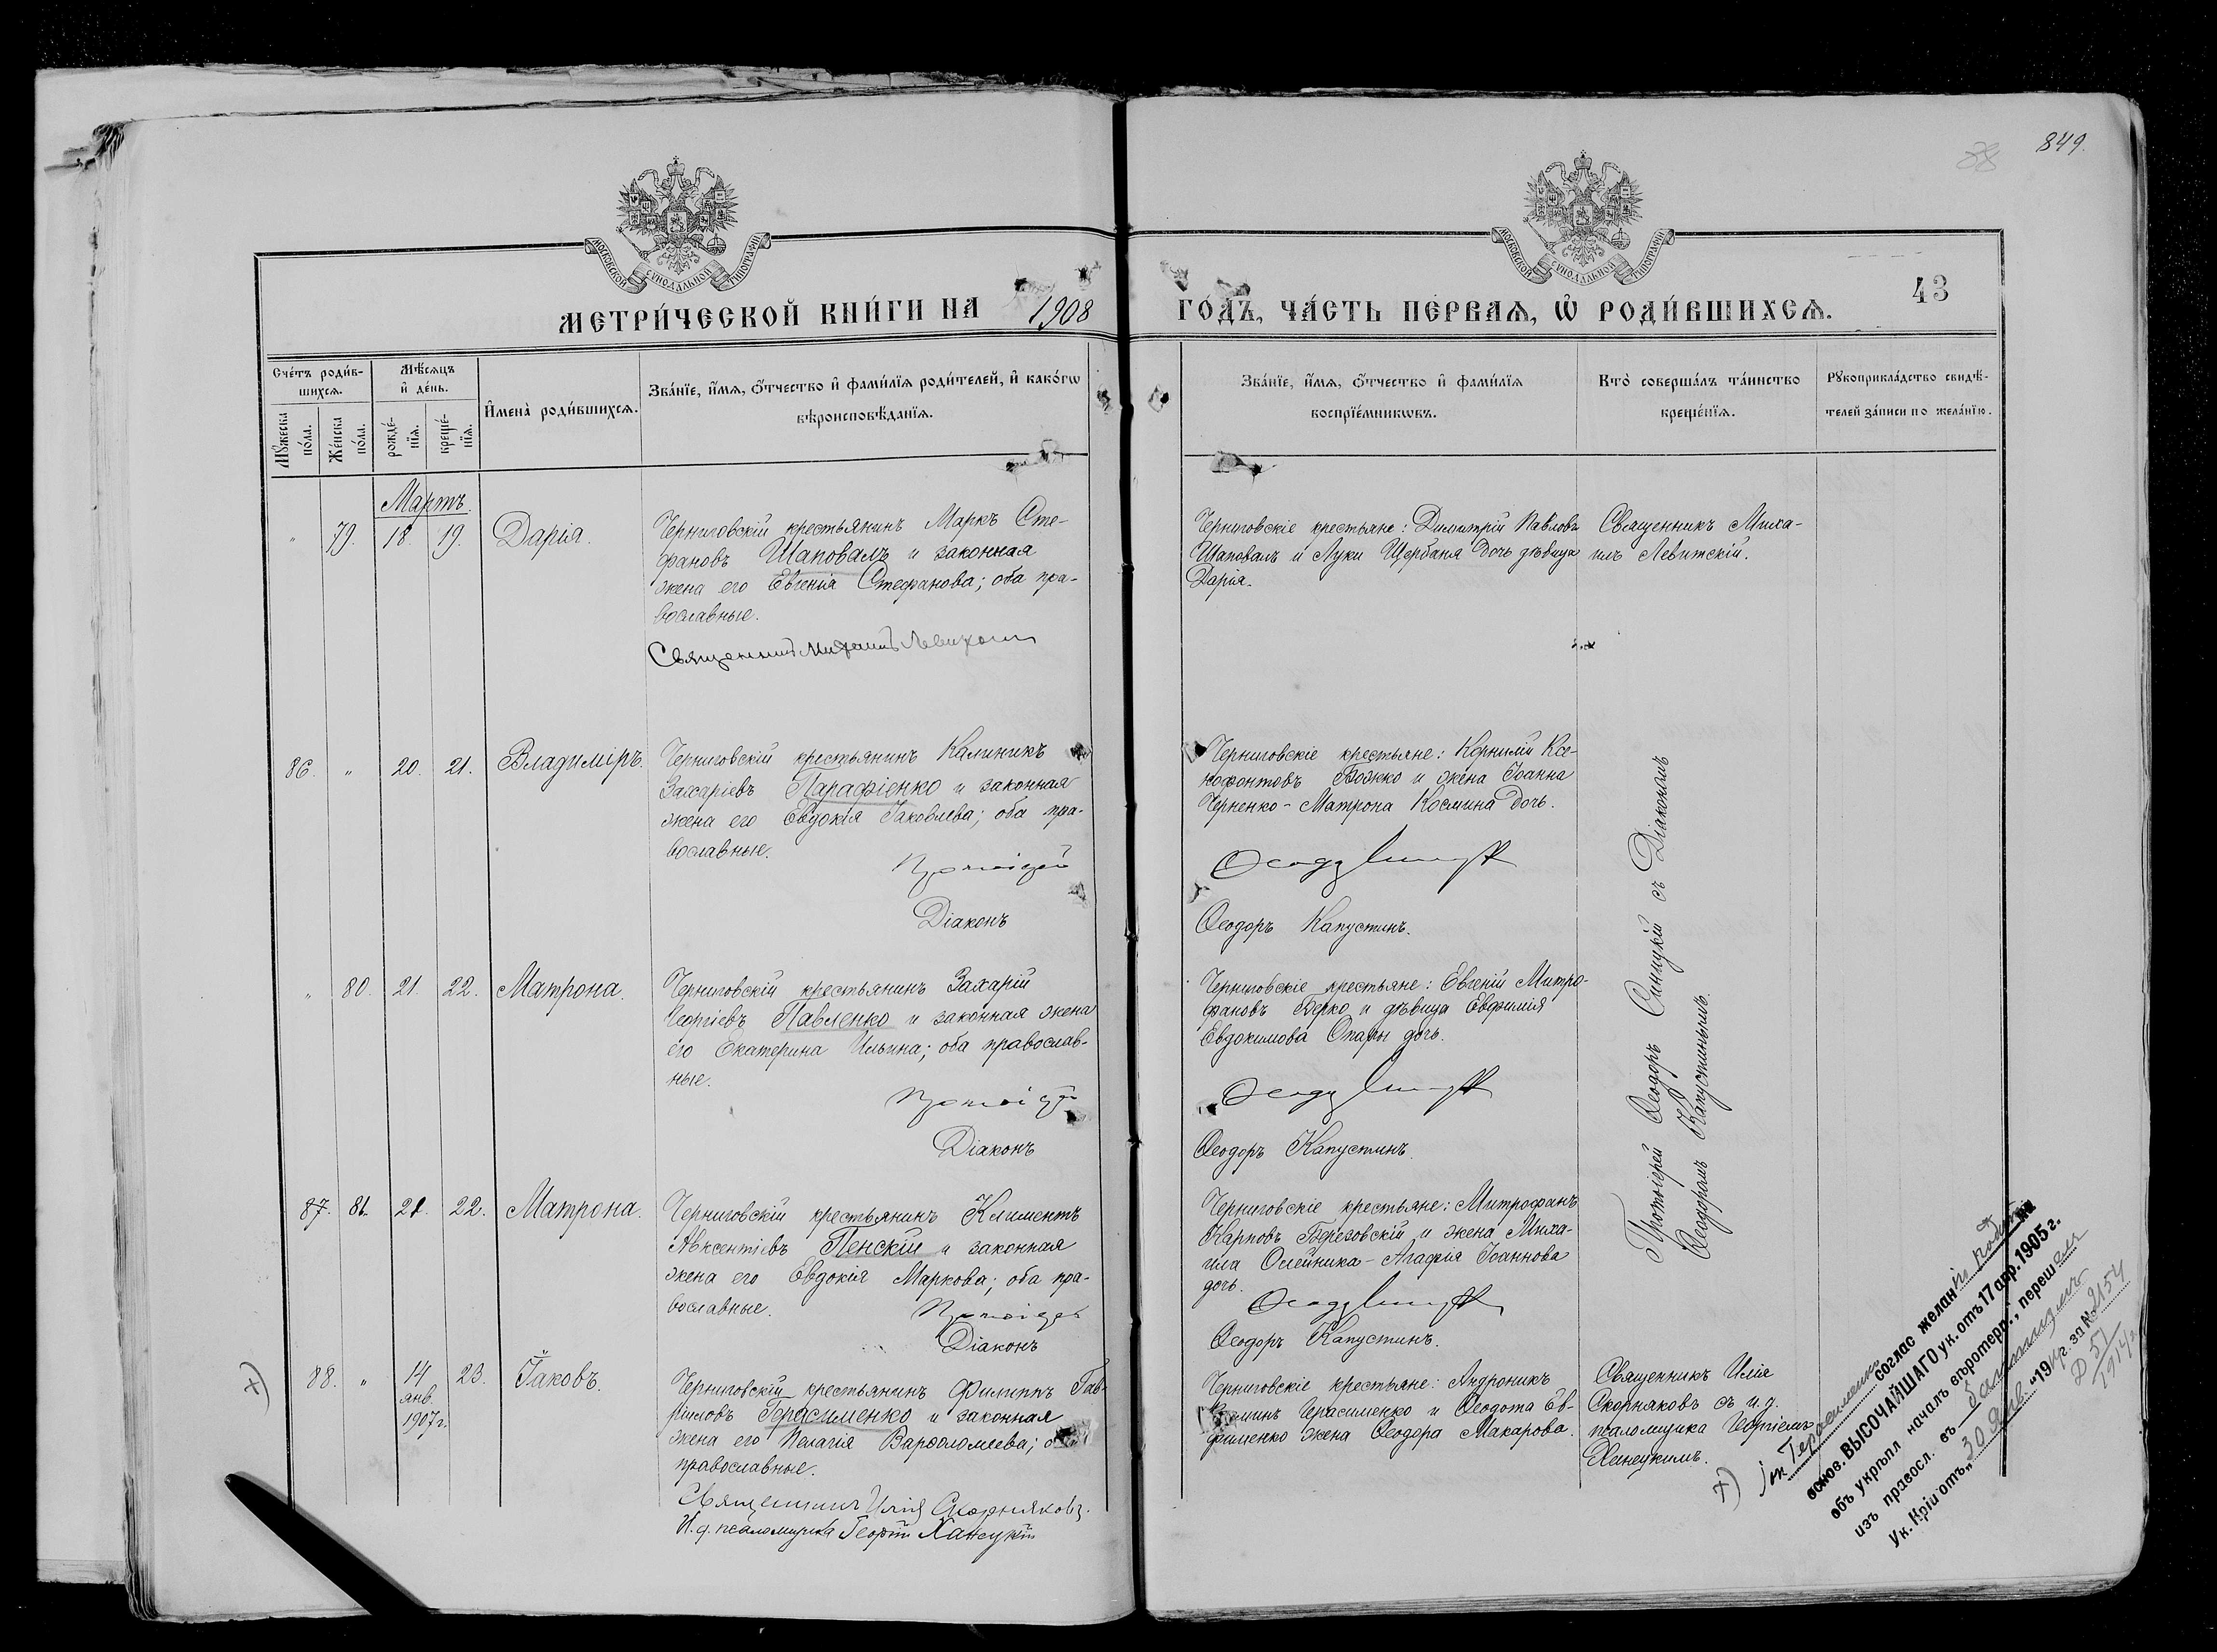 849.
38
МОСКОВСКОЙ СѴНОДАЛЬНОЙ ТИПОГРАФІИ
МОСКОВСКОЙ СѴНОДАЛЬНОЙ ТИПОГРАФІИ
МЕТРИ́ЧЕСКОЙ КНИ́ГИ НА 1908 ГО́ДЪ, ЧА́СТЬ ПЕ́РВАѦ, Ѡ҆ РОДИ́ВШИХСѦ.
43
Сче́тъ роди́в-
шихсѧ.
Мꙋ́жеска по́ла.
Же́нска по́ла.
Мѣ́сѧцъ
и҆ де́нь.
рожде́-
нїѧ.
креще́-
нїѧ.
И҆мена̀ роди́вшихсѧ.
Зва́нїе, и҆́мѧ, ѻ҆́тчество и҆ фами́лїѧ роди́телей, и҆ како́гѡ
вѣроисповѣ́данїѧ.
Зва́нїе, и҆́мѧ, ѻ҆́тчество и҆ фами́лїѧ
воспрїе́мникѡвъ.
Кто̀ соверша́лъ та́инство
креще́нїѧ.
Рꙋкоприкла́дство свидѣ́-
телей за́писи по жела́нїю.
Мартъ.
" 79. 18. 19. Дарія.
Черниговскій крестьянинъ Маркъ Сте-
фановъ Шаповалъ и законная
жена его Евгенія Стефанова; оба пра-
вославные.
Священникъ Михаилъ Левитскій
Черниговскіе крестьяне: Димитрій Павловъ
Шаповалъ и Луки Щербаня дочь дѣвица
Дарія.
Священникъ Миха-
илъ Левитскій.
86. " 20. 21. Владиміръ.
Черниговскій крестьянинъ Калиникъ
Захаріевъ Парафіенко и законная
жена его Евдокія Іаковлева; оба пра-
вославные.
Протоіерей
Діаконъ
Черниговскіе крестьяне: Корнилій Ксе-
нофонтовъ Божко и жена Іоанна
Черненко - Матрона Космина дочь.
Ѳеодоръ Капустинъ.
" 80. 21. 22. Матрона.
Черниговскій крестьянинъ Захарій
Георгіевъ Павленко и законная жена
его Екатерина Ильина; оба православ-
ные.
Протоіерей
Діаконъ
Черниговскіе крестьяне: Евгеній Митро-
фановъ Берко и дѣвица Евфимія
Евдокимова Опары дочь.
Ѳеодоръ Капустинъ.
87. 81. 21. 22. Матрона.
Черниговскій крестьянинъ Климентъ
Авксентіевъ Пенскій и законная
жена его Евдокія Маркова; оба пра-
вославные.
Протоіерей
Діаконъ
Черниговскіе крестьяне: Митрофанъ
Карповъ Березовскій и жена Миха-
ила Олейника - Агафія Іоаннова
дочь.
Ѳеодоръ Капустинъ.
Протоіерей Ѳеодоръ Синицкій съ Діакономъ
Ѳеодоромъ Капустинымъ.
+) 88. " 14 янв. 1907 г. 23. Іаковъ.
Черниговскій крестьянинъ Филиппъ Гав-
риловъ Герасименко и законная
жена его Пелагія Варѳоломеева; оба
православные.
Священникъ Илія Скорняковъ.
И. д. псаломщика Георгій Ханецкій
Черниговскіе крестьяне: Андроникъ
Герасименко и Ѳеодота Ев-
фименко жена Ѳеодора Макарова.
Священникъ Илія
Скорняковъ съ и. д.
псаломщика Георгіемъ
Ханецкимъ.
+) Герасименко соглас желан
основ. ВЫСОЧАЙШАГО ук. отъ 17 апр. 1905 г.
объ укрѣпл началъ вѣротерп., переш
изъ правосл. въ баптизмъ
Ук. Кріи отъ „30 Янв. “ 1914 г. за № 2154
Д 51
1914 г.